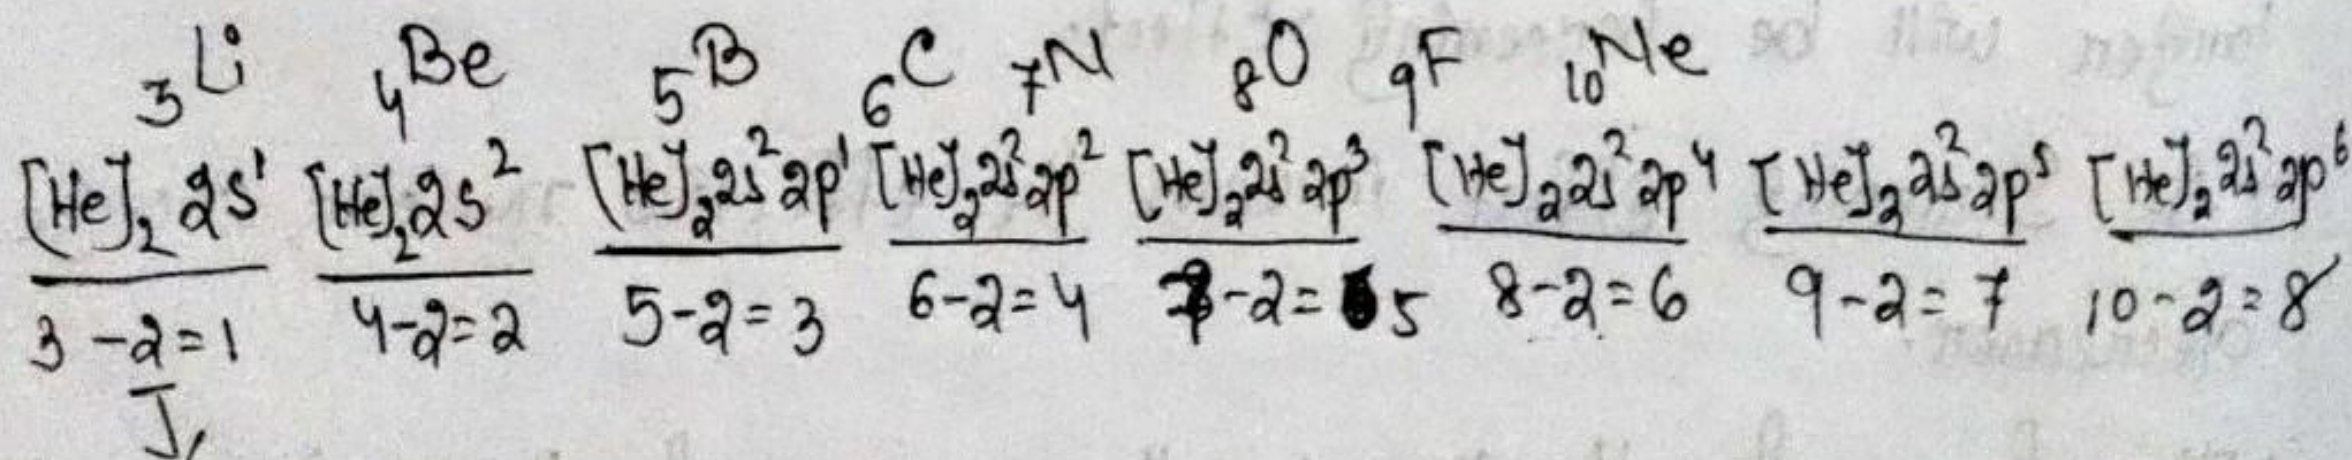 ₃Li ₄Be ₅B ₆C ₇N ₈O ₉F ₁₀Ne
[He]₂ 2s¹ [He]₂ 2s² [He]₂ 2s² 2p¹ [He]₂ 2s² 2p² [He]₂ 2s² 2p³ [He]₂ 2s² 2p⁴ [He]₂ 2s² 2p⁵ [He]₂ 2s² 2p⁶
3-2=1 4-2=2 5-2=3 6-2=4 7-2=5 8-2=6 9-2=7 10-2=8